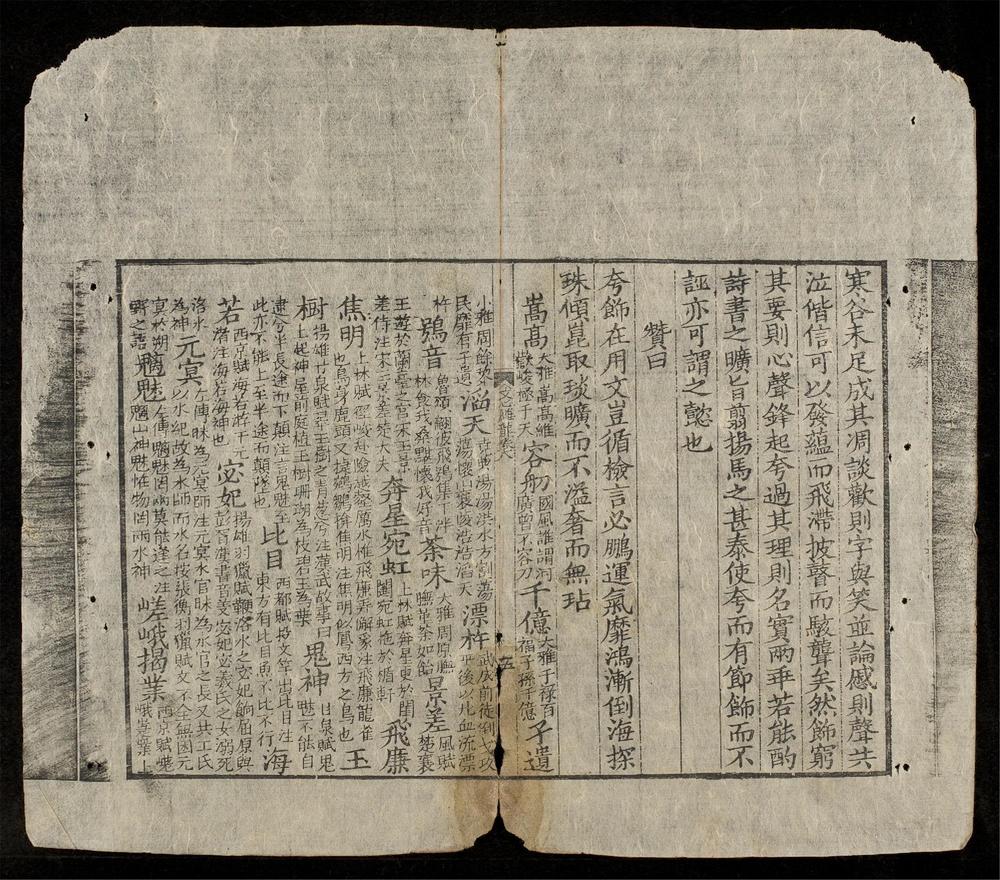 寒谷未足成其凋談歡則字與笑並論慼則聲共
泣偕信可以發蘊而飛滯披瞽而駭聾矣然飾窮
其要則心聲鋒起夸過其理則名實兩乖若能酌
詩書之曠旨翦揚馬之甚泰使夸而有節飾而不
誣亦可謂之懿也
贊曰
夸飾在用文豈循檢言必鵬運氣靡鴻漸倒海探
珠傾崑取琰曠而不溢奢而無玷
嵩高大雅嵩高維嶽峻極于天容舠國風誰謂河廣曾不容刀千億大雅干祿百福子孫千億孑遺
文雕龍卷八
五
小雅周餘黎民靡有孑遺滔天堯典湯湯洪水方割蕩蕩懷山襄陵浩浩滔天漂杵武成前徒倒戈攻于後以北血流漂
杵鴞音魯頌翩彼飛鴞集于泮林食我桑黮懷我好音荼味大雅周原膴膴堇荼如飴景差風賦楚襄
王遊於蘭臺之宮宋玉景差侍注宋玉景差楚大夫奔星宛虹上林賦奔星更於閨闥宛虹拖於楯軒飛廉
焦明上林賦徑峻赴險越壑厲水椎飛廉弄獬豸注飛廉龍雀也鳥身鹿頭又揜鵷鶵捎焦明注焦明似鳳西方之鳥也玉
樹揚雄甘泉賦翠玉樹之青葱兮注漢武故事曰上起神屋前庭植玉樹珊瑚為枝碧玉為葉鬼神甘泉賦鬼魅不能自
逮兮半長途而下顛注言鬼魅至此亦不能上至半途而顛墜也比目西都賦投文竿出比目注東方有比目魚不比不行海
若西京賦海若游于元渚注海若海神也宓妃揚雄羽獵賦鞭洛水之宓妃餉屈原與彭胥漢書音義宓妃宓羲氏之女溺死
洛水為神元冥左傳昧為元冥師注元冥水官昧為水官之長又共工氏以水紀故為水師而水名按張衡羽獵賦文不全無困元
冥於朔野之語魑魅左傳魑魅罔兩莫能逢之注魑山神魅怪物罔兩水神嵯峨揭業西京賦嵯峨崨嶪上